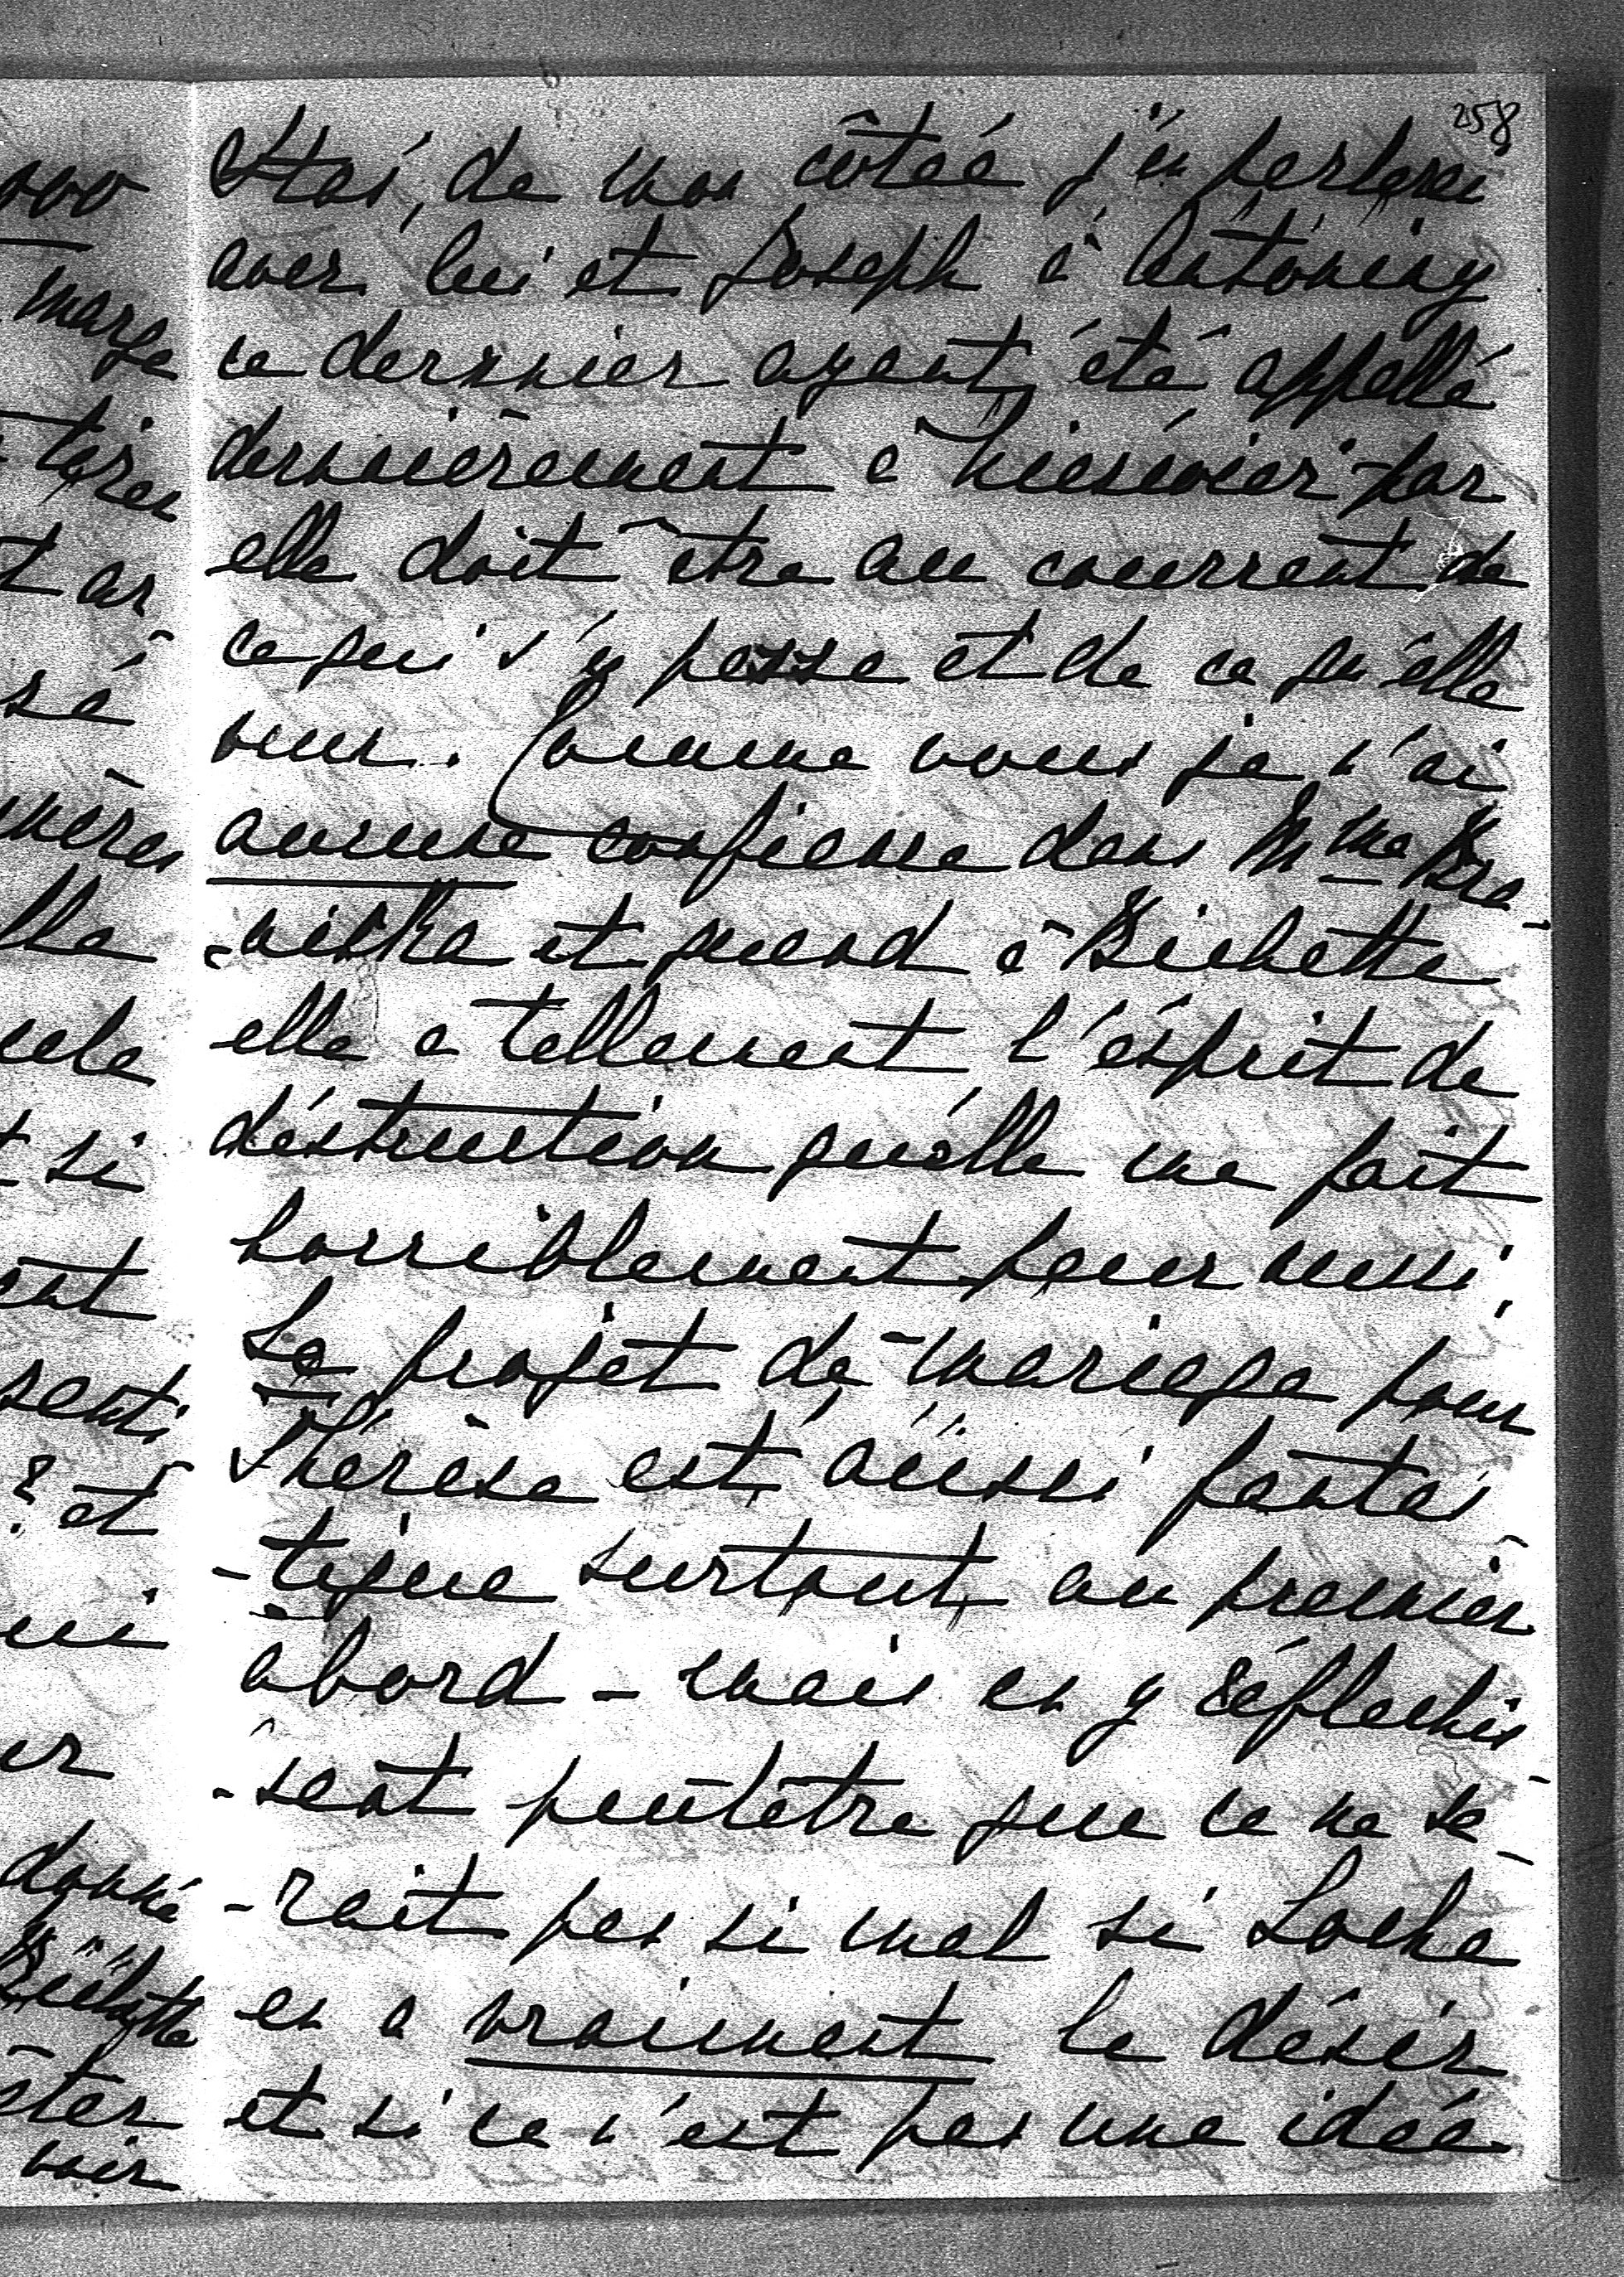 258
Stas, de mon côteé j'en parlerai
avec lui et Joseph à Antoniny
ce dernnier ayant été appellé
dernnièrement à Niesvież par
elle doit être au courrent de
ce qui s'y passe et de ce qu'elle
veur. Comme vous je n'ai
aucune confience dans Mme Bra-
-nitka et quend à Bichette
elle a tellement l'ésprit de
déstruction qu'élle me fait
horriblement peur aussi.
Le projet de mariage pour
Thérèse est aussi fantas-
-tique surtout au premier
abord - mais en y réflechis-
-sent peutêtre que ce ne se-
-rait pas si mal si Locha
en a vraiment le désir
et si ce n'est pas une idée
000
marge
t ar
sé
mères
lla
cela
t si
ent
senti
? et
ui
er
donné
Bichette
ster
voir